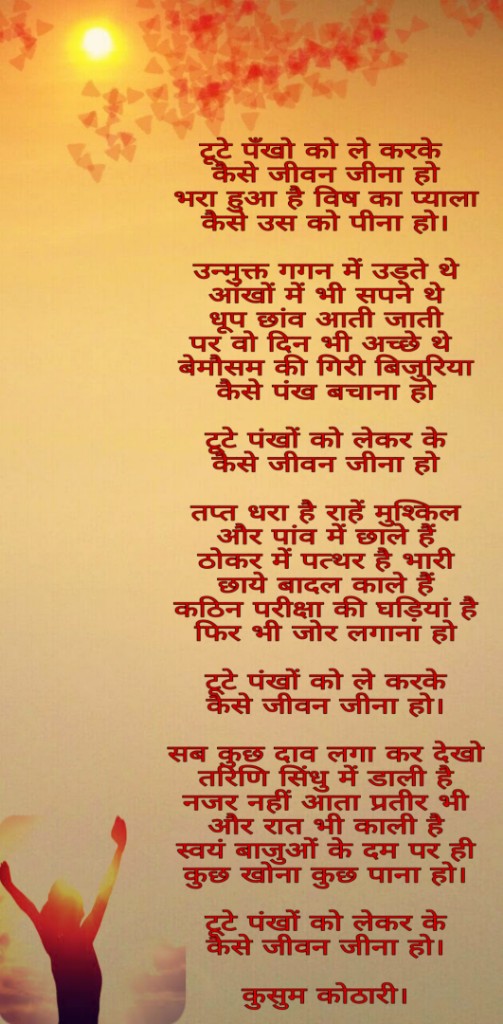 टूटे पँखो को ले करके
कैसे जीवन जीना हो
भरा हुआ है विष का प्याला
कैसे उस को पीना हो।
उन्मुक्त गगन में उड़ते थे
आंखों में भी सपने थे
धूप छांव आती जाती
पर वो दिन भी अच्छे थे
बेमौसम की गिरी बिजुरिया
कैसे पंख बचाना हो
टूटे पंखों को लेकर के
कैसे जीवन जीना हो
तप्त धरा है राहें मुश्किल
और पांव में छाले हैं
ठोकर में पत्थर है भारी
छाये बादल काले हैं
कठिन परीक्षा की घड़ियां है
फिर भी जोर लगाना हो
टूटे पंखों को ले करके
कैसे जीवन जीना हो।
सब कुछ दाव लगा कर देखो
तरिणि सिंधु में डाली है
नजर नहीं आता प्रतीर भी
और रात भी काली है
स्वयं बाजुओं के दम पर ही
कुछ खोना कुछ पाना हो।
टूटे पंखों को लेकर के
कैसे जीवन जीना हो।
कुसुम कोठारी।